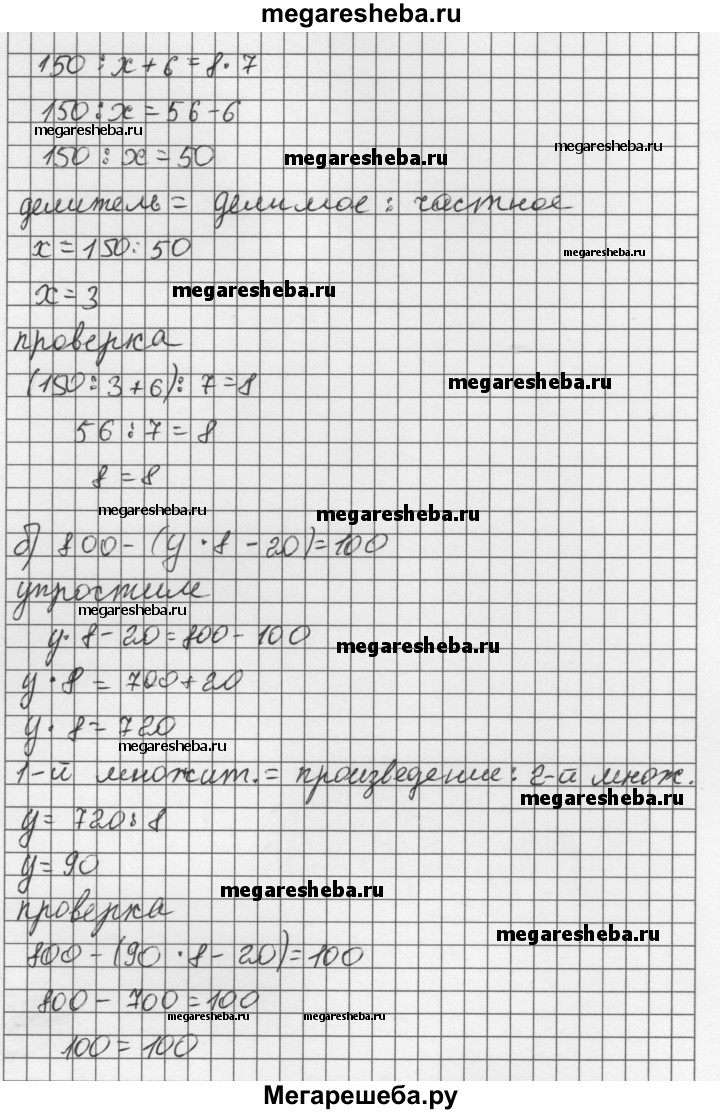 megaresheba.ru
150 : x + 6 = 8 · 7
150 : x = 56 - 6
megaresheba.ru
megaresheba.ru
150 : x = 50
megaresheba.ru
делитель = делимое : частное
x = 150 : 50
megaresheba.ru
x = 3
megaresheba.ru
проверка
(150 : 3 + 6) : 7 = 8
megaresheba.ru
56 : 7 = 8
8 = 8
megaresheba.ru
megaresheba.ru
б) 800 - (y · 8 - 20) = 100
упростим
megaresheba.ru
y · 8 - 20 = 800 - 100
megaresheba.ru
y · 8 = 700 + 20
y · 8 = 720
megaresheba.ru
1-й множит. = произведение : 2-й множ.
megaresheba.ru
y = 720 : 8
y = 90
megaresheba.ru
проверка
megaresheba.ru
800 - (90 · 8 - 20) = 100
800 - 700 = 100
megaresheba.ru
megaresheba.ru
100 = 100
Мегарешеба.ру